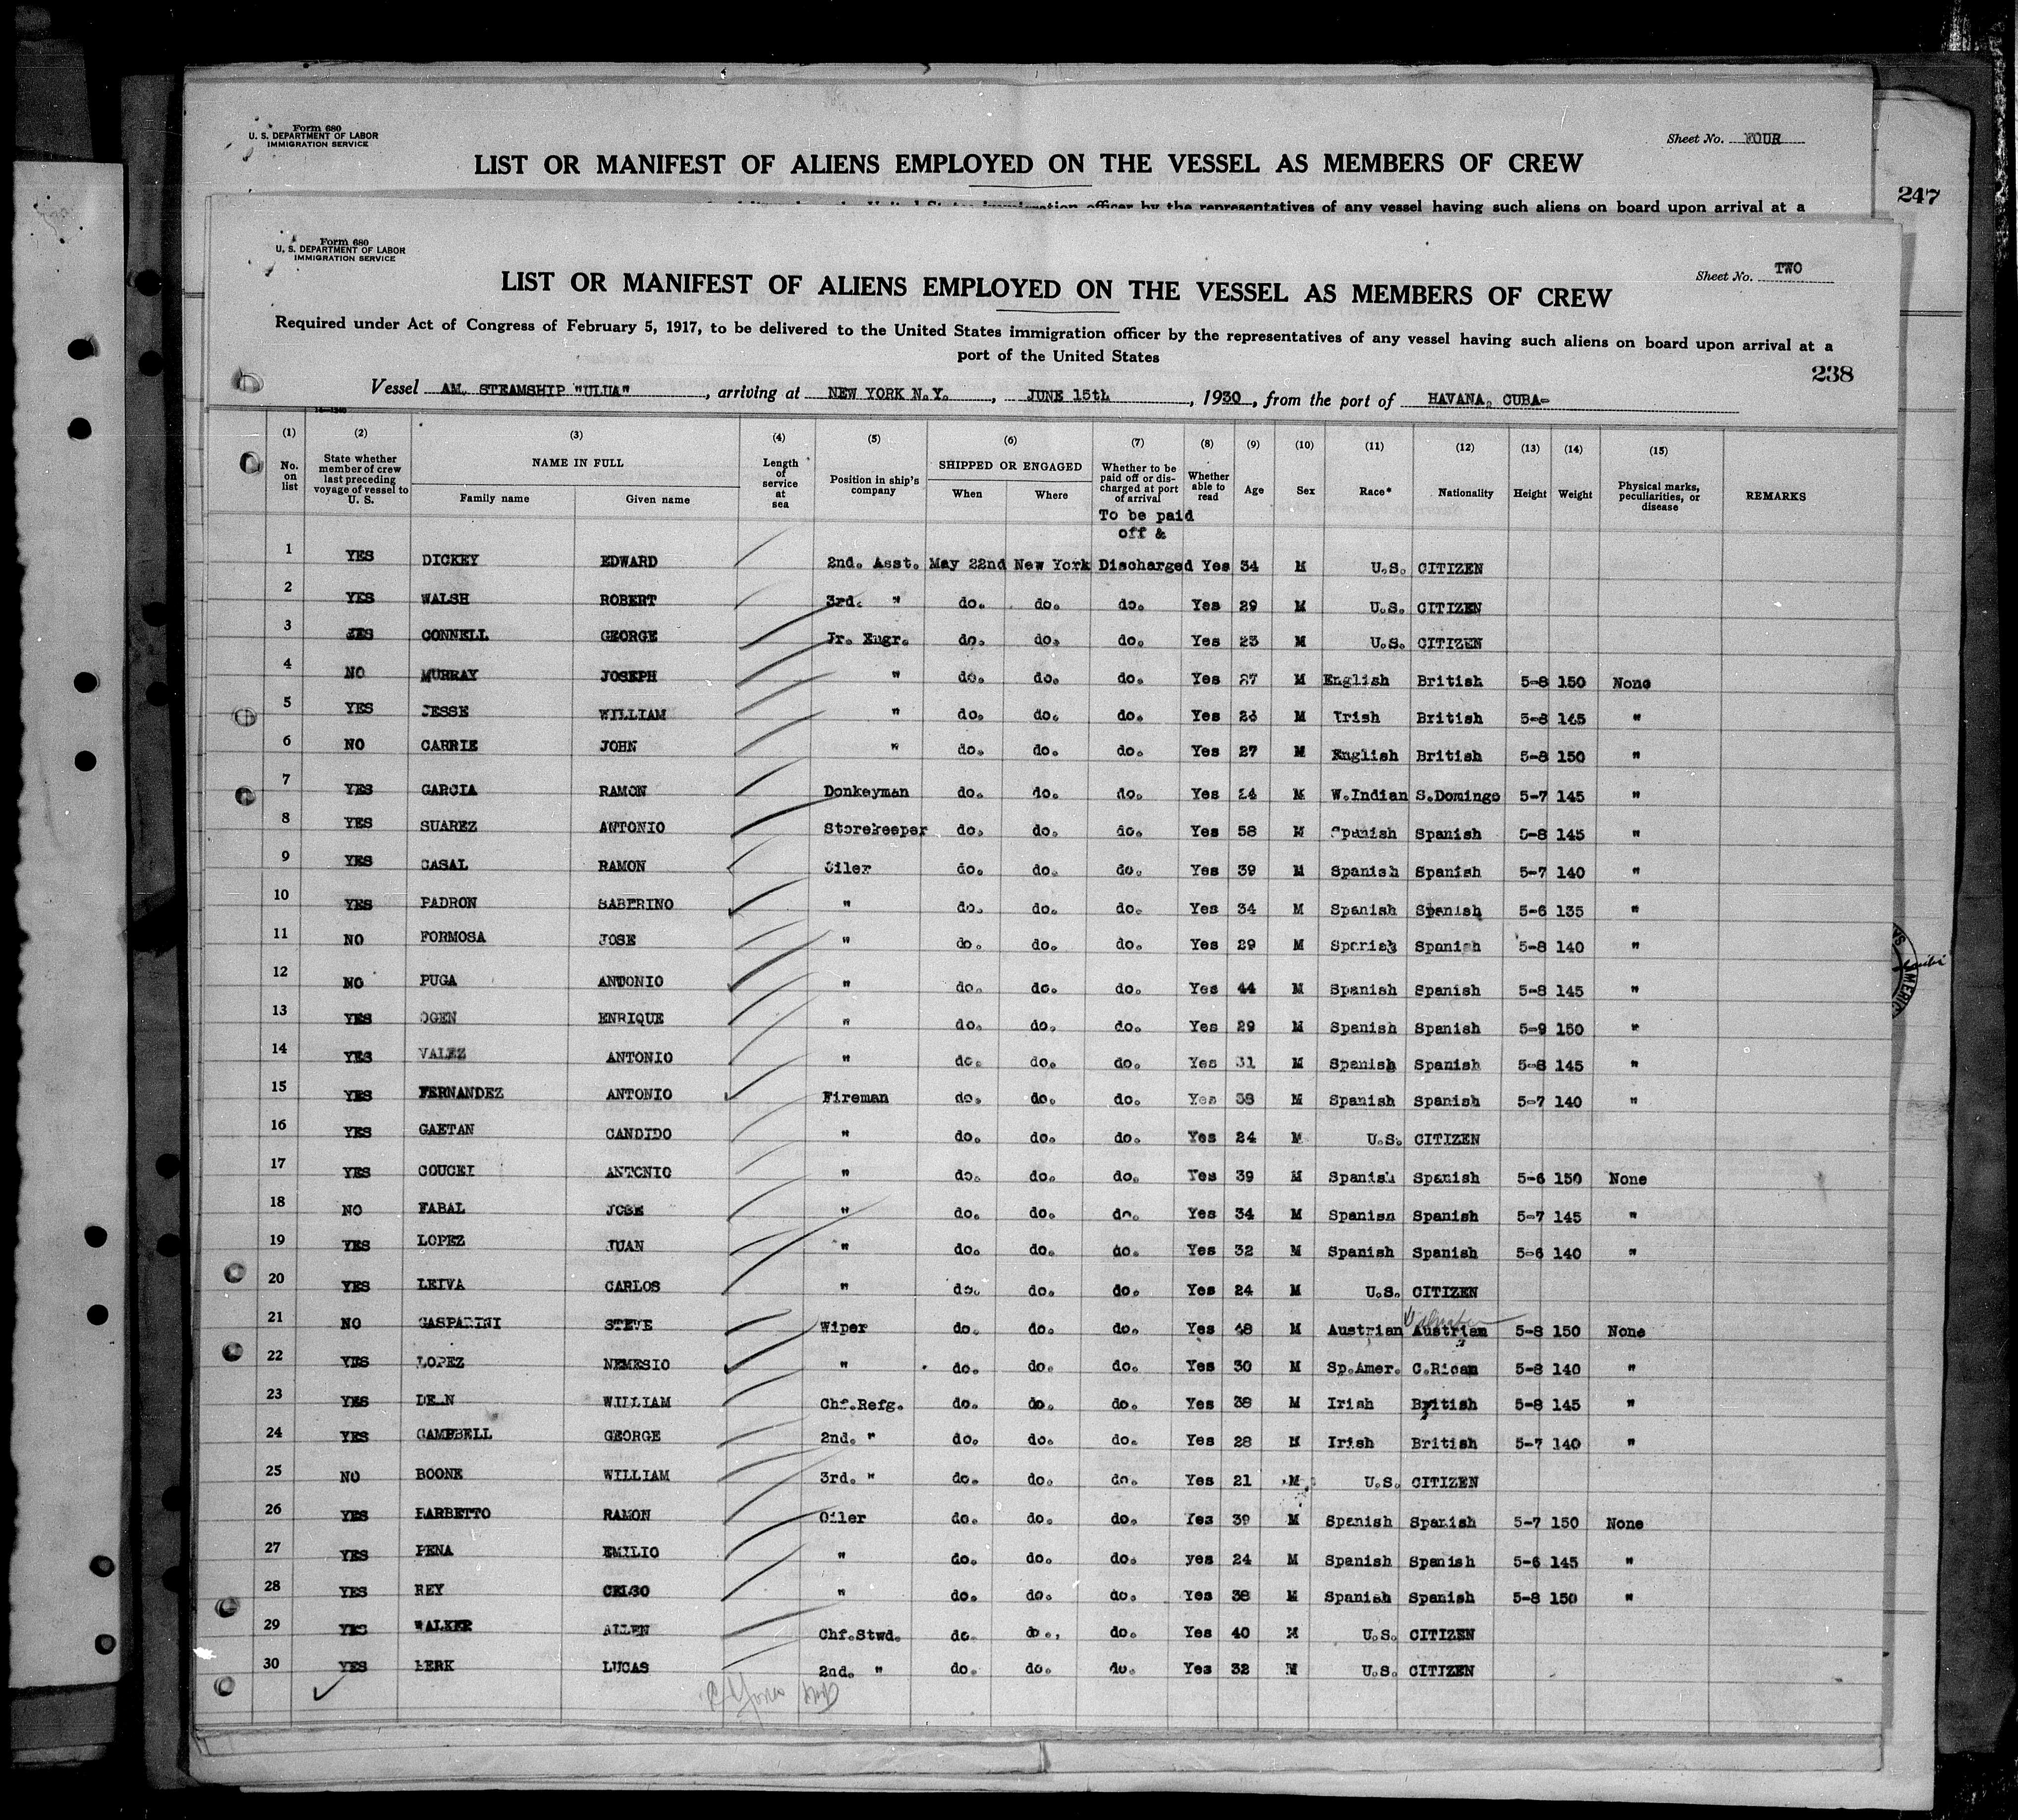 Form 680
U. S. DEPARTMENT OF LABOR
IMMIGRATION SERVICE
Sheet No. FOUR
LIST OR MANIFEST OF ALIENS EMPLOYED ON THE VESSEL AS MEMBERS OF CREW
immigration officer by the representatives of any vessel having such aliens on board upon arrival at a
247
Form 680
U. S. DEPARTMENT OF LABOR
IMMIGRATION SERVICE
Sheet No. TWO
LIST OR MANIFEST OF ALIENS EMPLOYED ON THE VESSEL AS MEMBERS OF CREW
Required under Act of Congress of February 5, 1917, to be delivered to the United States immigration officer by the representatives of any vessel having such aliens on board upon arrival at a
port of the United States
238
Vessel AM. STEAMSHIP "ULUA", arriving at NEW YORK N.Y., JUNE 15th, 1930, from the port of HAVANA, CUBA-
(1) (2) (3) (4) (5) (6) (7) (8) (9) (10) (11) (12) (13) (14) (15)
No. on list
State whether member of crew last preceding voyage of vessel to U. S.
NAME IN FULL
Family name
Given name
Length of service at sea
Position in ship's company
SHIPPED OR ENGAGED
When
Where
Whether to be paid off or discharged at port of arrival
Whether able to read
Age
Sex
Race*
Nationality
Height
Weight
Physical marks, peculiarities, or disease
REMARKS
To be paid
off &
1 YES DICKEY EDWARD 2nd. Asst. May 22nd New York Discharged Yes 34 M U.S. CITIZEN
2 YES WALSH ROBERT 3rd. " do. do. do. Yes 29 M U.S. CITIZEN
3 YES CONNELL GEORGE Jr. Engr. do. do. do. Yes 23 M U.S. CITIZEN
4 NO MURRAY JOSEPH " do. do. do. Yes 27 M English British 5-8 150 None
5 YES JESSE WILLIAM " do. do. do. Yes M Irish British 5-8 145 "
6 NO CARRIE JOHN " do. do. do. Yes 27 M English British 5-8 150 "
7 YES GARCIA RAMON Donkeyman do. do. do. Yes 24 M W.Indian S.Domingo 5-7 145 "
8 YES SUAREZ ANTONIO Storekeeper do. do. do. Yes 58 M Spanish Spanish 5-8 145 "
9 YES CASAL RAMON Oiler do. do. do. Yes 39 M Spanish Spanish 5-7 140 "
10 YES PADRON SABERINO " do. do. do. Yes 34 M Spanish Spanish 5-6 135 "
11 NO FORMOSA JOSE " do. do. do. Yes 29 M Spanish Spanish 5-8 140 "
12 NO PUGA ANTONIO " do. do. do. Yes 44 M Spanish Spanish 5-8 145 "
13 YES OGEN ENRIQUE " do. do. do. Yes 29 M Spanish Spanish 5-9 150 "
14 YES VALEZ ANTONIO " do. do. do. Yes 31 M Spanish Spanish 5-8 145 "
15 YES FERNANDEZ ANTONIO Fireman do. do. do. Yes 38 M Spanish Spanish 5-7 140 "
16 YES GAETAN CANDIDO " do. do. do. Yes 24 M U.S. CITIZEN
17 YES COUCEI ANTONIO " do. do. do. Yes 39 M Spanish Spanish 5-6 150 None
18 NO FABAL JOSE " do. do. do. Yes 34 M Spanish Spanish 5-7 145 "
19 YES LOPEZ JUAN " do. do. do. Yes 32 M Spanish Spanish 5-6 140 "
20 YES LEIVA CARLOS " do. do. do. Yes 24 M U.S. CITIZEN
21 NO GASPARINI STEVE Wiper do. do. do. Yes 48 M Austrian Austrian 5-8 150 None
22 YES LOPEZ NEMESIO " do. do. do. Yes 30 M Sp.Amer. C.Rican 5-8 140 "
23 YES WILLIAM Chf.Refg. do. do. do. Yes 38 M Irish British 5-8 145 "
24 YES CAMPBELL GEORGE 2nd. " do. do. do. Yes 28 M Irish British 5-7 140 "
25 NO BOONE WILLIAM 3rd. " do. do. do. Yes 21 M U.S. CITIZEN
26 YES BARBETTO RAMON Oiler do. do. do. Yes 39 M Spanish Spanish 5-7 150 None
27 YES PENA EMILIO " do. do. do. yes 24 M Spanish Spanish 5-6 145 "
28 YES REY CELSO " do. do. do. Yes 38 M Spanish Spanish 5-8 150 "
29 YES WALKER ALLEN Chf.Stwd. do do., do. Yes 40 M U.S. CITIZEN
30 YES BERK LUCAS 2nd. " do. do. do. Yes 32 M U.S. CITIZEN